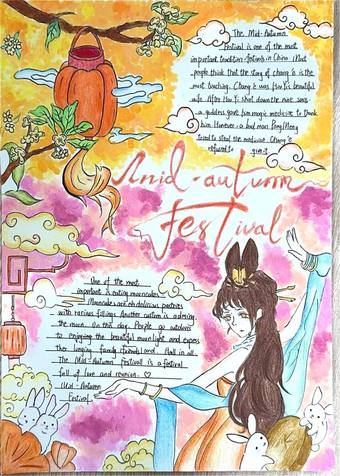 The Mid-Autumn
Festival is one of the most
important tradition festivals in China. Most
people think that the story of chang'e is the
most touching. Chang'e was Hou Yi's beautiful
wife. After Hou Yi shot down the nine suns
a goddess gave him magic medicine to thank
him. However a bad man Pang Meng
tried to steal the medicine. Chang'e
refused to give it
Mid-autumn
Festival
One of the most
important is eating mooncakes.
Mooncakes are delicious pastries
with various fillings. Another custom is admiring
the moon. On this day. People go outdoors
to enjoying the beautiful moonlight and express
their longing family friends and. All in all.
The Mid-Autumn Festival is a festival
full of love and reunion.
Mid-Autumn
Festival.